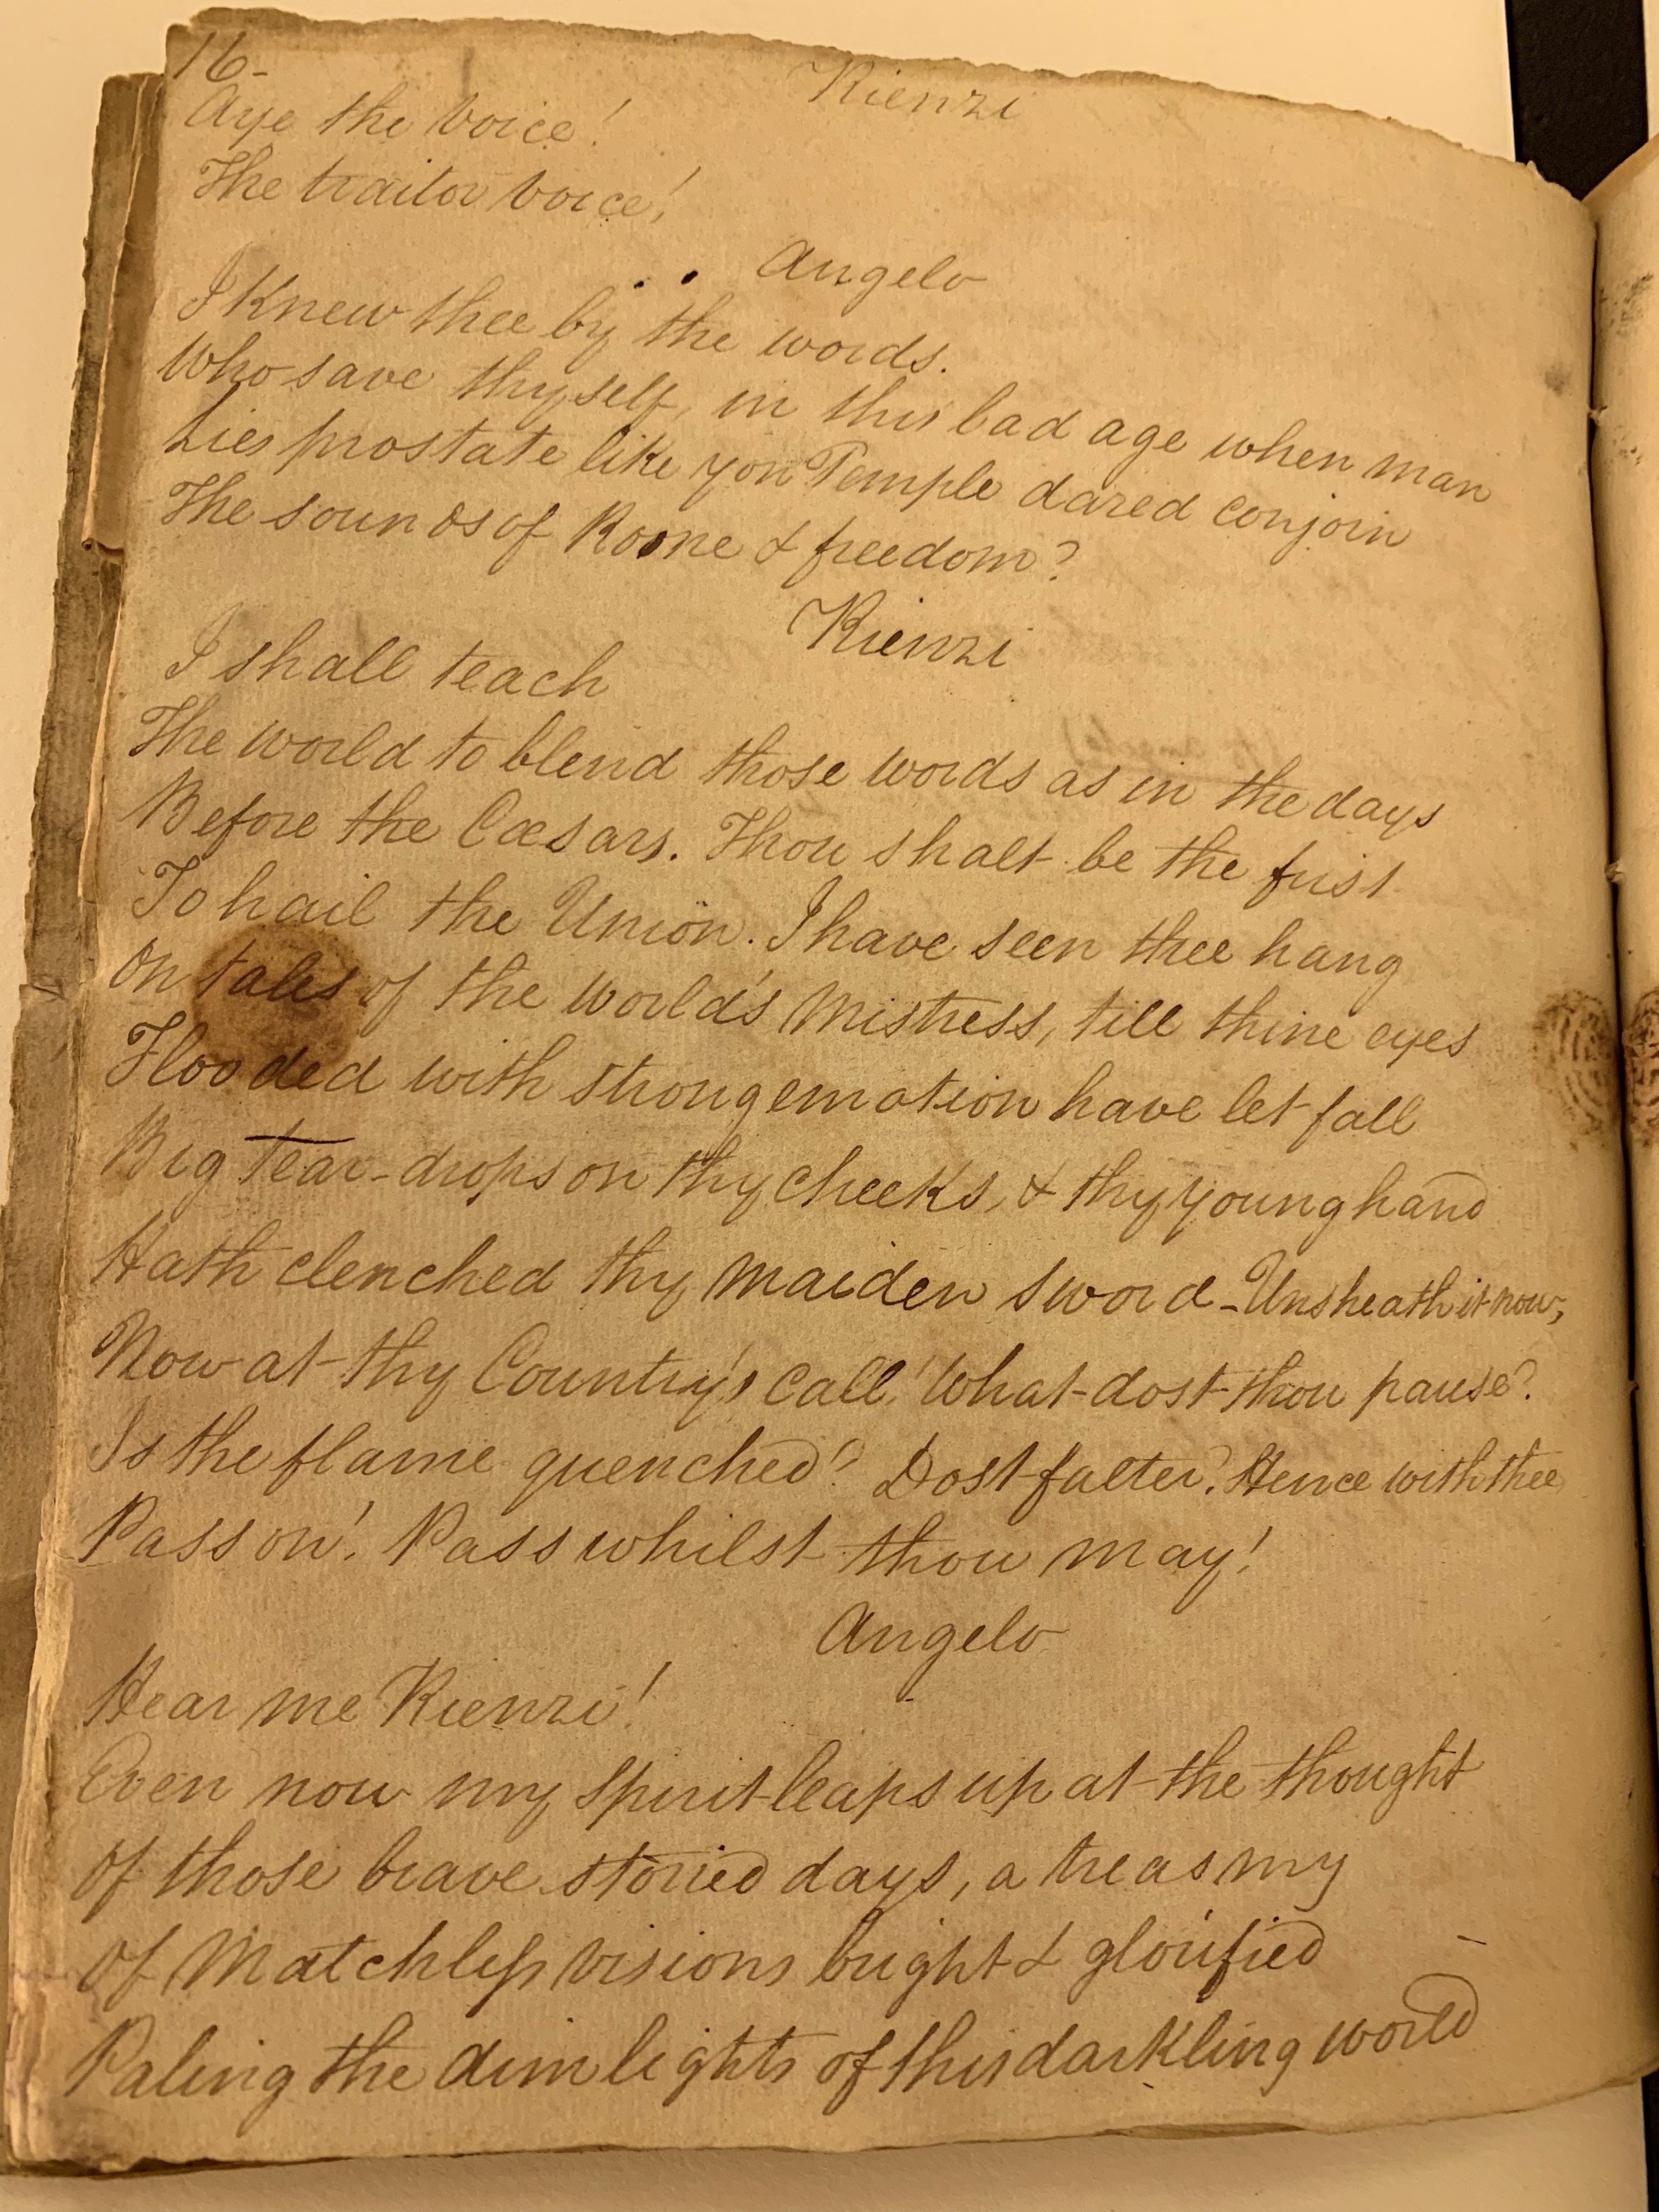 16-
Rienzi
Aye the voice!
The traitor voice!
Angelo
I Knew thee by the words.
Who save thyself, in this bad age when man
Lies prostate like yon Temple dared conjoin
The sounds of Rome & freedom?
Rienzi
I shall teach
The world to blend those words as in the days
Before the Cæsars. Thou shalt be the first
To hail the Union. I have seen thee hang
On tales of the World's Mistress, till thine eyes
Flooded with strong emotion have let fall
Big tear-drops on thy cheeks, & thy young hand
Hath clenched thy maiden sword - Unsheath it now,
Now at thy Country's call! What dost thou pause?
Is the flame quenched? Dost falter? Hence with thee
Pass on! Pass whilst thou may!
Angelo
Hear me Rienzi!
Even now my spirit leaps up at the thought
Of those brave storied days, a treasury
Of Matchless visions bright & glorified
Paling the dim lights of this darkling world